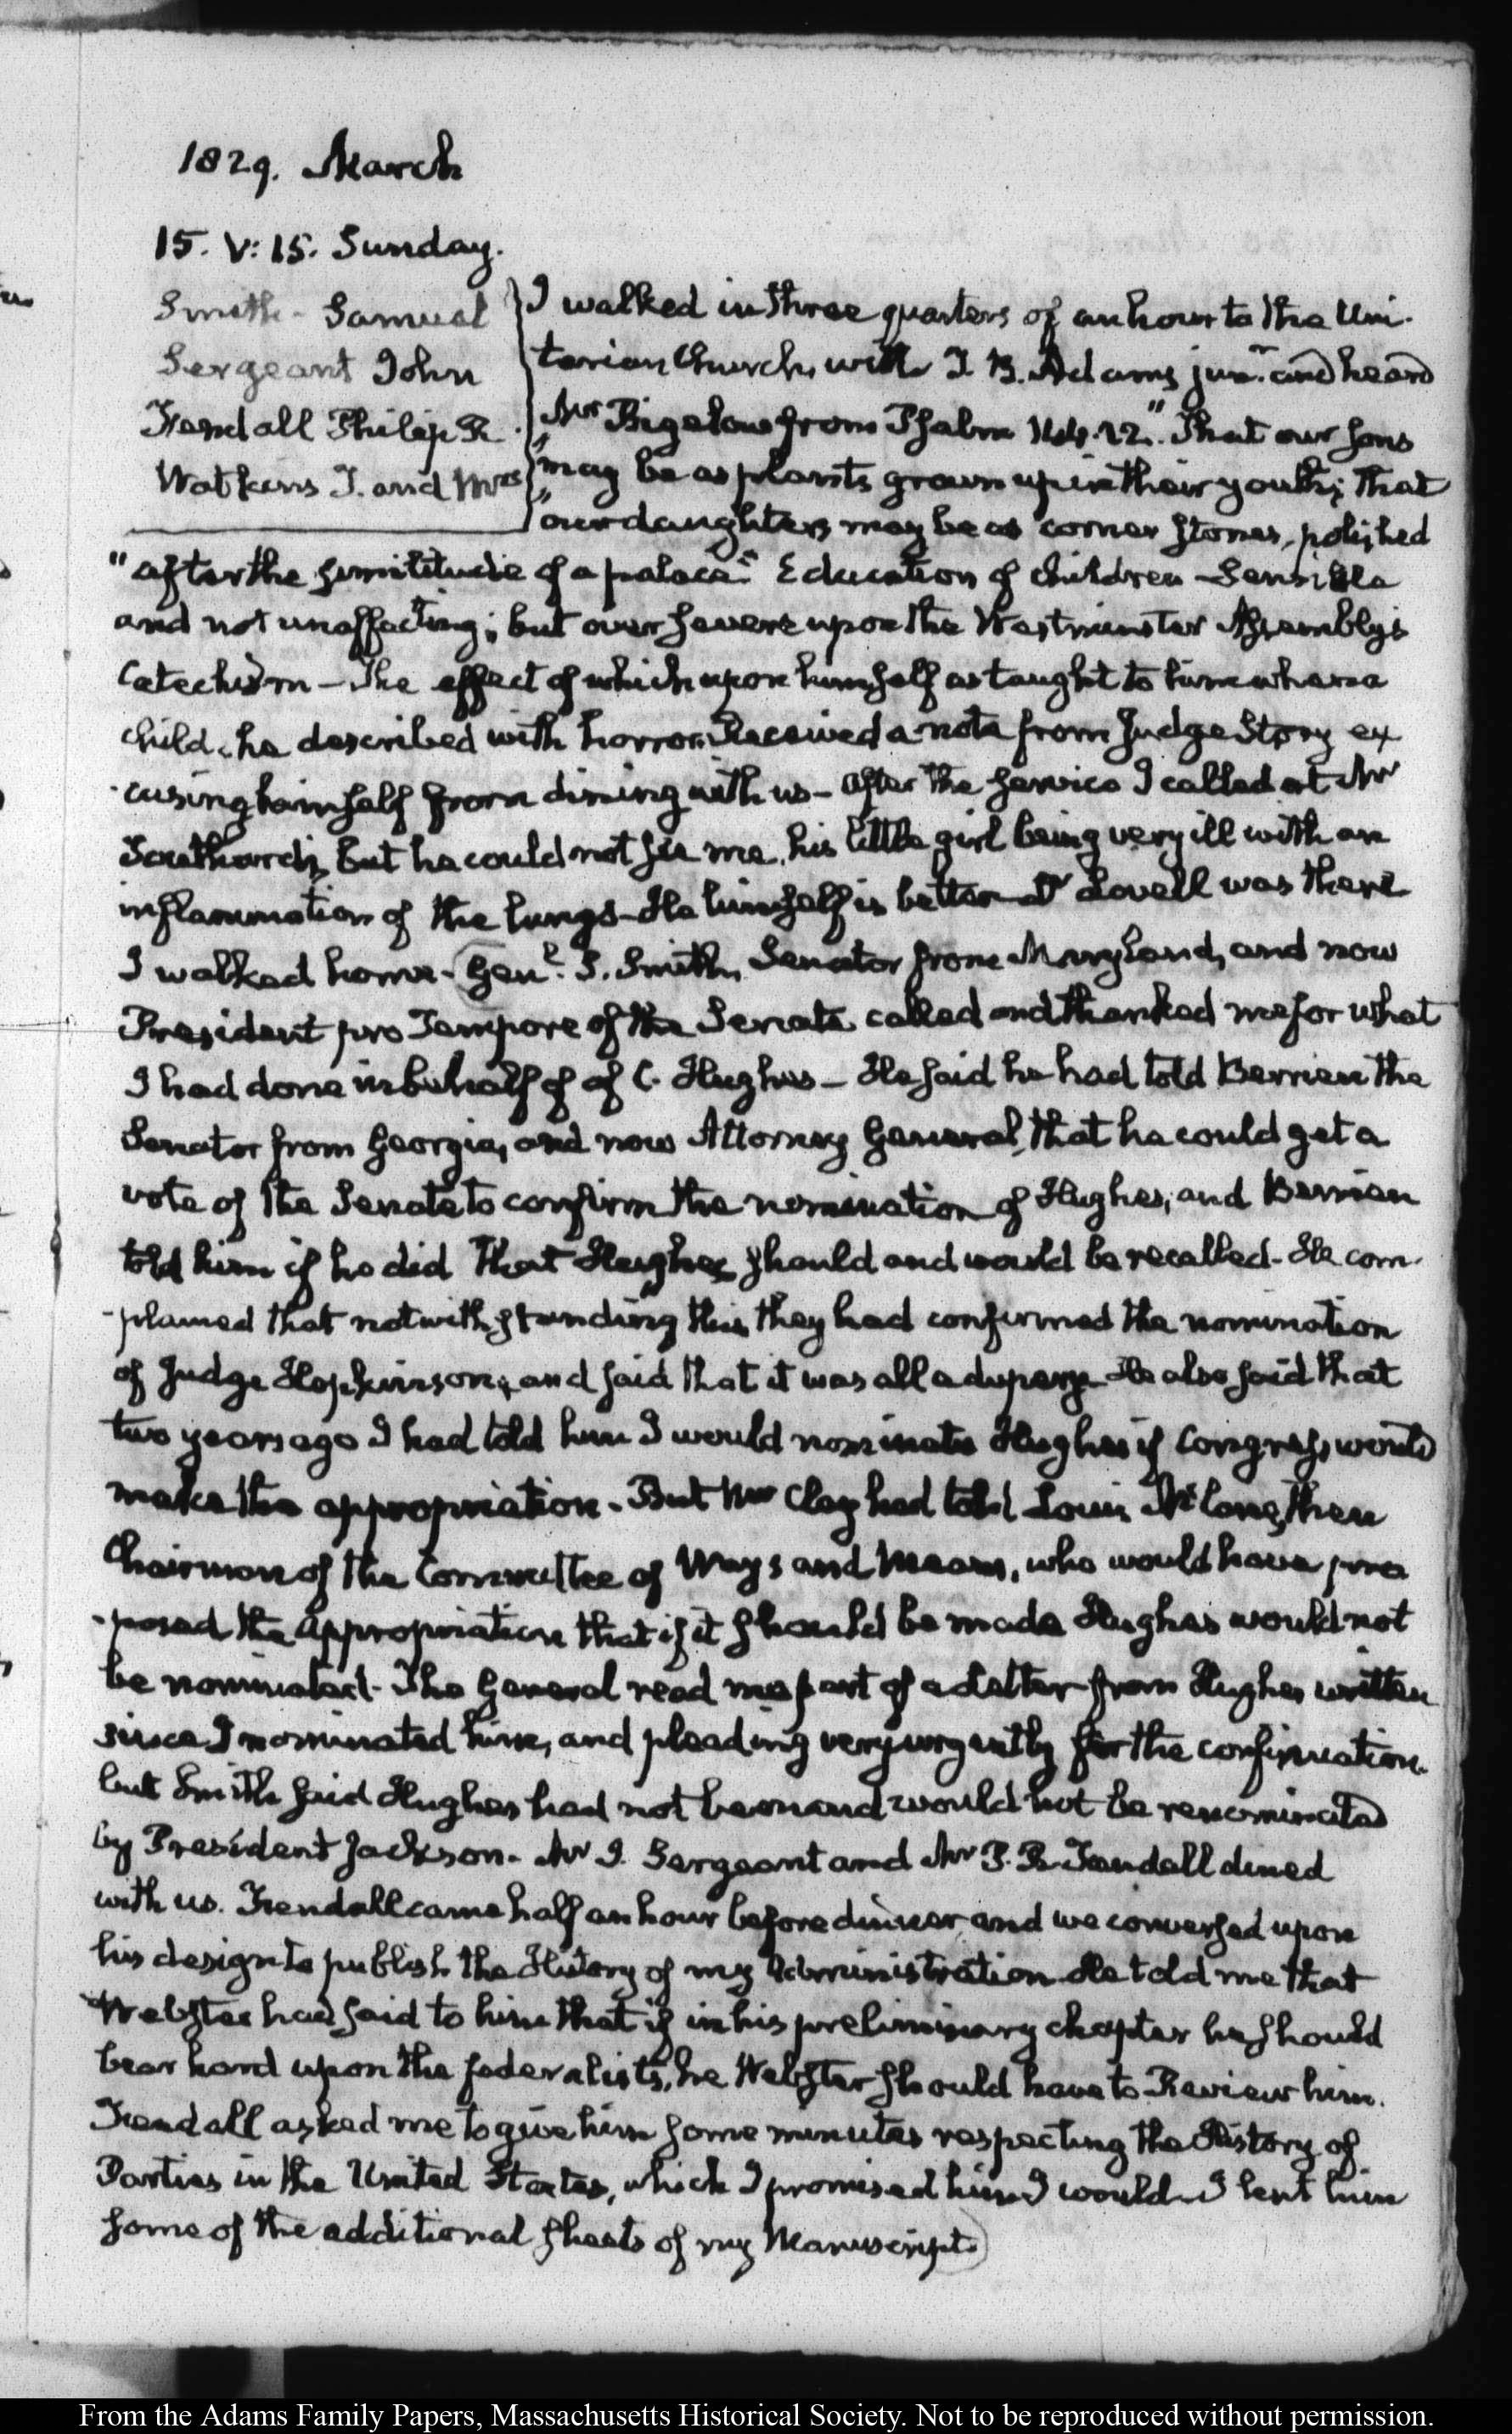 1829. March
15. V: 15. Sunday.
Smith - Samuel
Sergeant John
Fendall Philip R.
Watkins T. and Mrs
I walked in three quarters of an hour to the Uni-
tarian Church, with T. B. Adams junr. and heard
Mr Bigelow from Psalm 144. 12. "That our sons
"may be as plants grown up in their youth; that
"our daughters may be as corner stones, polished
"after the similitude of a palace." Education of children - Sensible
and not unaffecting; but over severe upon the Westminster Assembly's
Catechism - The effect of which upon himself as taught to him when a
child, he described with horror. Received a note from Judge Story ex
-cusing himself from dining with us - After the service I called at Mr
Southard's, but he could not see me, his little girl being very ill with an
inflammation of the lungs - He himself is better - Dr Lovell was there
I walked home - Genl. S. Smith, Senator from Maryland, and now
President pro Tempore of the Senate called and thanked me for what
I had done in behalf of of C. Hughes - He said he had told Berrien the
Senator from Georgia, and now Attorney General, that he could get a
vote of the Senate to confirm the nomination of Hughes; and Berrien
told him if he did that Hughes should and would be recalled - He com-
-plained that notwithstanding this, they had confirmed the nomination
of Judge Hopkinson; and said that it was all a dupery - He also said that
two years ago I had told him I would nominate Hughes if Congress would
make the appropriation - But Mr Clay had told Louis McLane, then
Chairman of the Committee of Ways and Means, who would have pro
-posed the appropriation that if it should be made Hughes would not
be nominated - The General read me part of a Letter from Hughes written
since I nominated him, and pleading very urgently for the confirmation.
but Smith said Hughes had not been and would not be renominated
by President Jackson - Mr J. Sergeant and Mr P. R. Fendall dined
with us. Fendall came half an hour before dinner, and we conversed upon
his design to publish the History of my Administration - He told me that
Webster had said to him that if in his preliminary chapter he should
bear hard upon the federalists, he Webster should have to Review him.
Fendall asked me to give him some minutes respecting the History of
Parties in the United States, which I promised him I would - I lent him
some of the additional sheets of my Manuscript.)
From the Adams Family Papers, Massachusetts Historical Society. Not to be reproduced without permission.